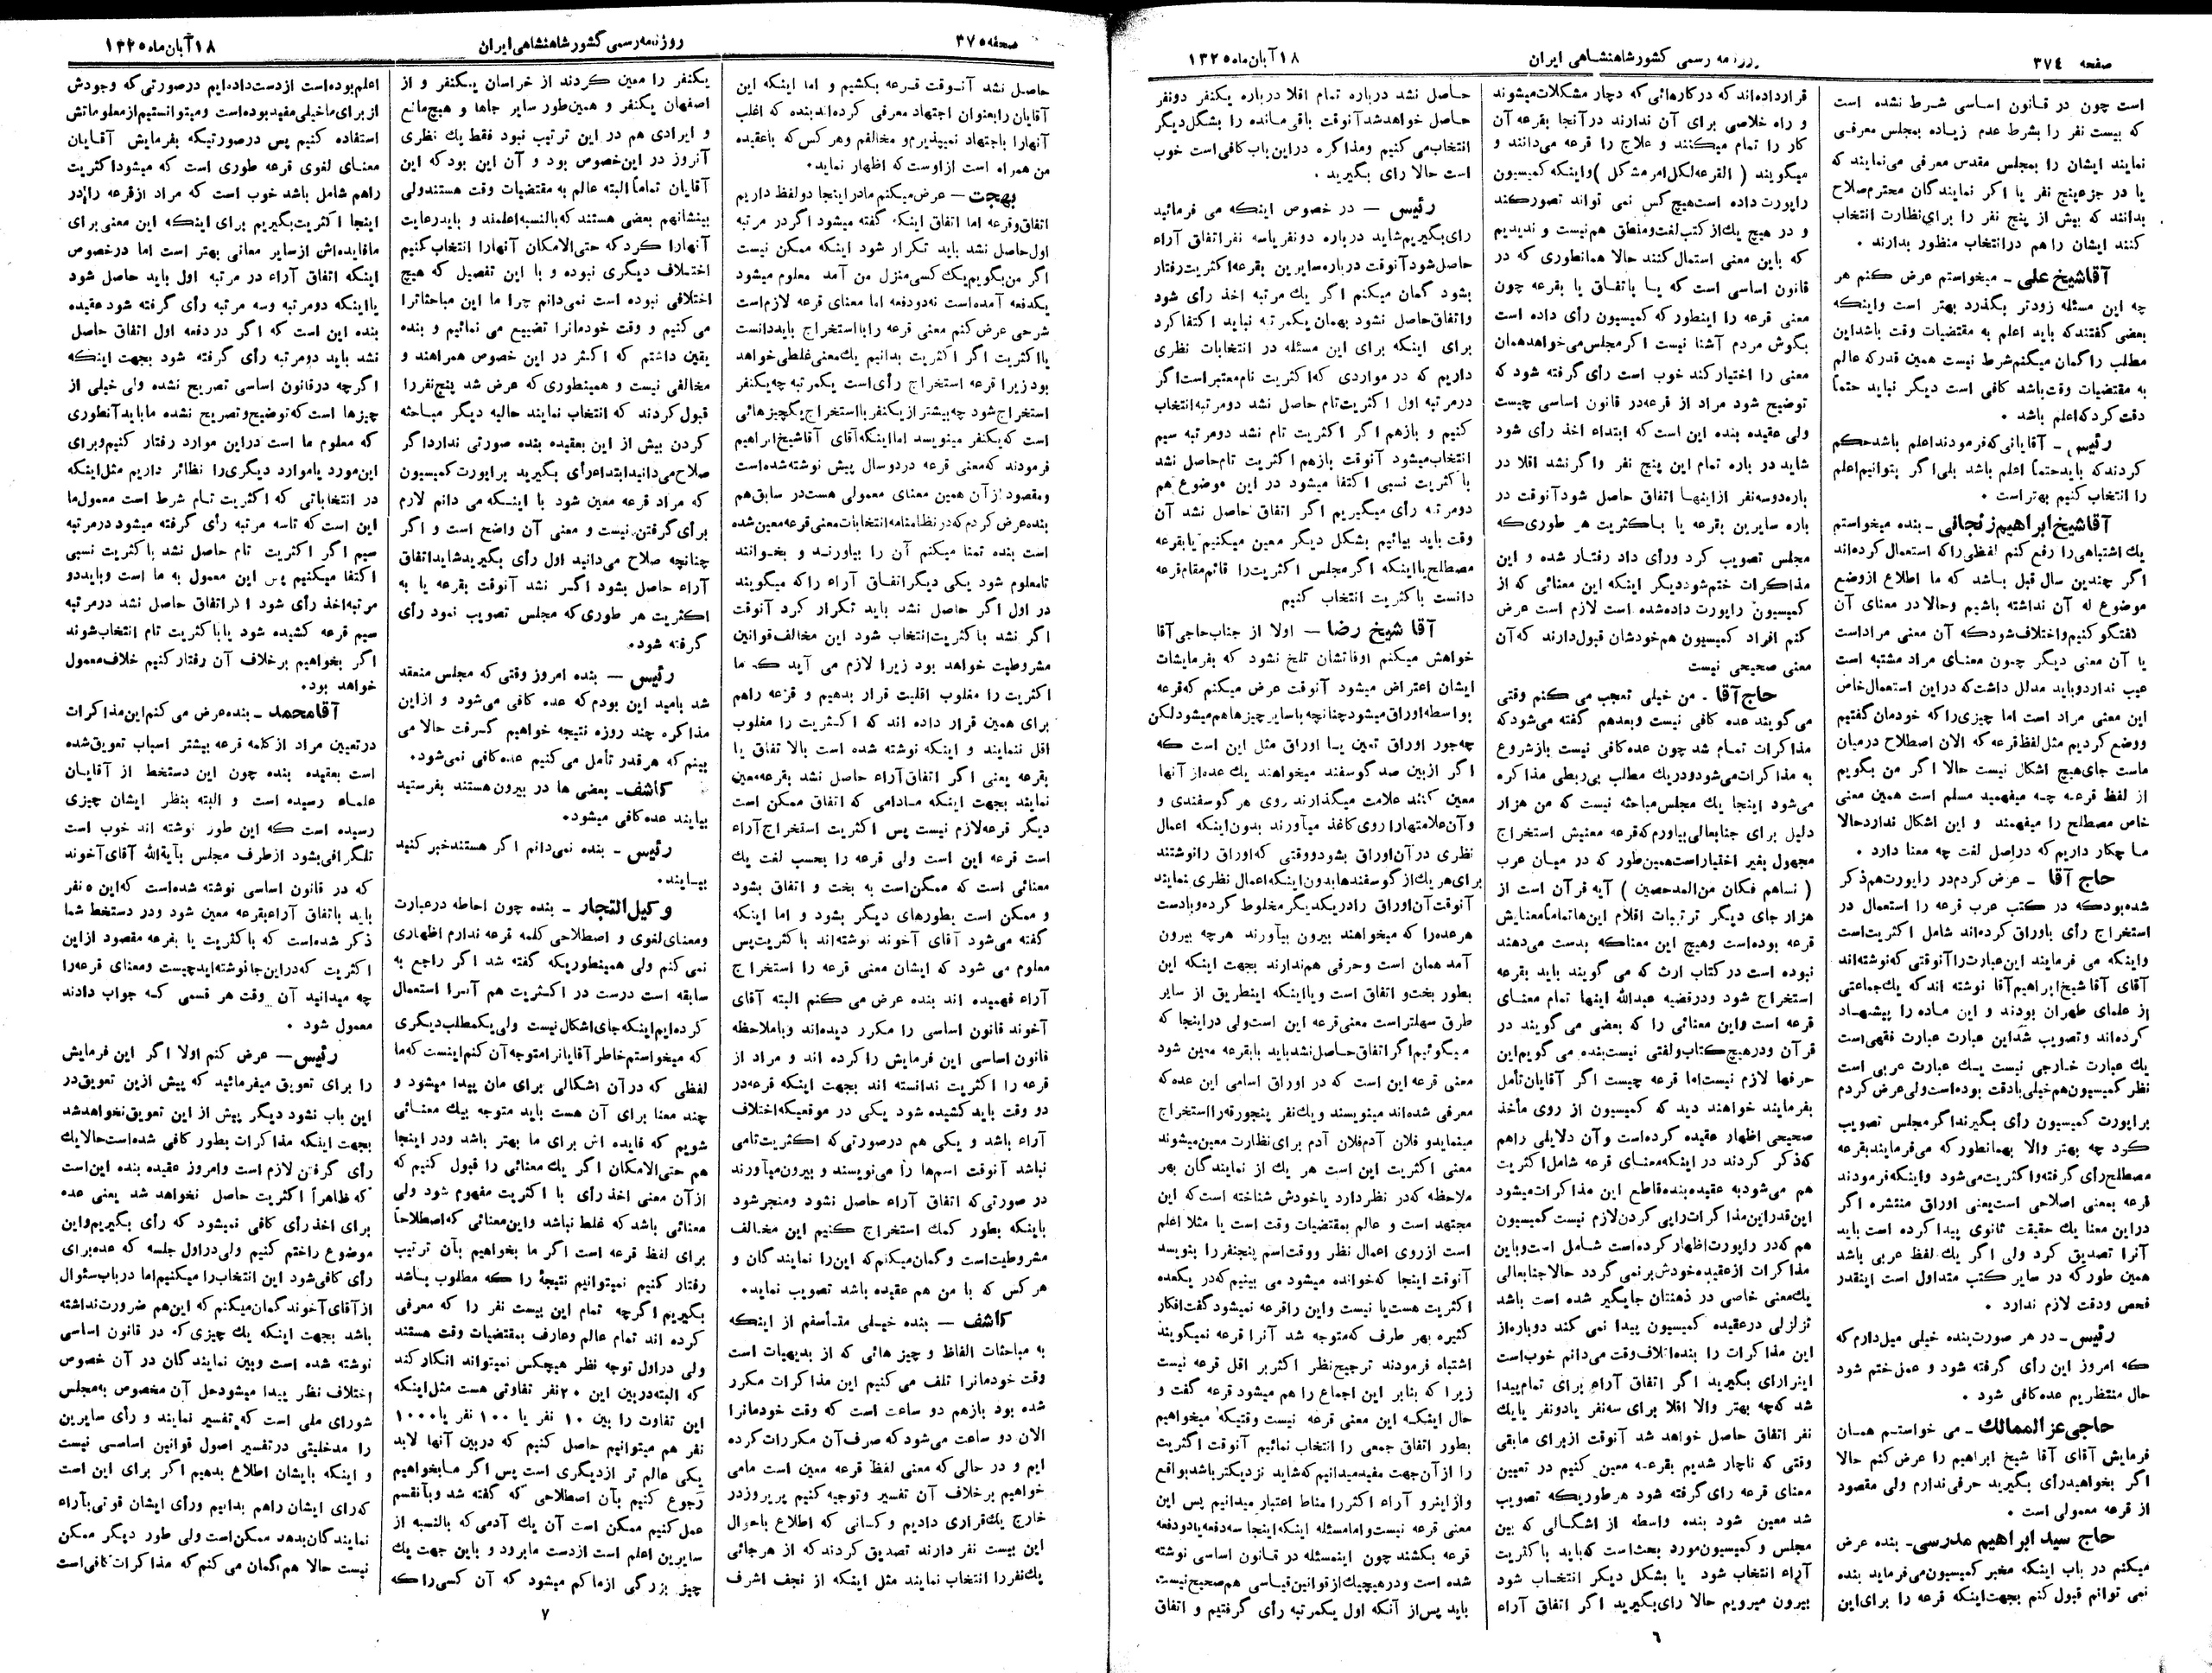 صفحه ۳۷٤
روزنامه رسمی کشور شاهنشاهی ایران
۱۸ آبان ماه ۱۳۲۵
است چون در قانون اساسی شرط نشده است
که بیست نفر را بشرط عدم زیاده بمجلس معرفی
نمایند ایشان را بمجلس مقدس معرفی می‌نمایند که
یا در جزء پنج نفر یا اگر نمایندگان محترم صلاح
بدانند که بیش از پنج نفر را برای نظارت انتخاب
کنند ایشان را هم در انتخاب منظور بدارند .
آقا شیخ علی ــ میخواستم عرض کنم هر
چه این مسئله زودتر بگذرد بهتر است و اینکه
بعضی گفتند که باید اعلم به مقتضیات وقت باشد این
مطلب را گمان میکنم شرط نیست همین قدر که عالم
به مقتضیات وقت باشد کافی است دیگر نباید حتماً
دقت کرد که اعلم باشد .
رئیس ــ آقایانی که فرمودند اعلم باشد حکم
کردند که باید حتماً اعلم باشد بلی اگر بتوانیم اعلم
را انتخاب کنیم بهتر است .
آقا شیخ ابراهیم زنجانی ــ بنده میخواستم
یك اشتباهی را رفع کنم لفظی را که استعمال کرده‌اند
اگر چندین سال قبل باشد که ما اطلاع از وضع
موضوع له آن نداشته باشیم و حالا در معنای آن
گفتگو کنیم و اختلاف شود که آن معنی مراد است
یا آن معنی دیگر چون معنای مراد مشتبه است
عیب ندارد و باید مدلل داشت که در این استعمال خاص
این معنی مراد است اما چیزی را که خودمان گفتیم
و وضع کردیم مثل لفظ قرعه که الان اصطلاح درمیان
ماست جای هیچ اشکال نیست حالا اگر من بگویم
از لفظ قرعه چه میفهمید مسلم است همین معنی
خاص مصطلح را میفهمند و این اشکال ندارد حالا
ما چکار داریم که در اصل لغت چه معنا دارد .
حاج آقا ــ عرض کردم در راپورت هم ذکر
شده بود که در کتب عرب قرعه را استعمال در
استخراج رأی باوراق کرده‌اند شامل اکثریت است
و اینکه می فرمایند این عبارت را آنوقتی که نوشته‌اند
آقای آقا شیخ ابراهیم آقا نوشته اند که یك جماعتی
از علمای طهران بودند و این ماده را پیشنهاد
کرده‌اند و تصویب شد این عبارت عبارت فقهی است
یك عبارت خارجی نیست یك عبارت عربی است
نظر کمیسیون هم خیلی بادقت بوده است ولی عرض کردم
براپورت کمیسیون رأی بگیرند اگر مجلس تصویب
کرد چه بهتر والا بهمانطور که می فرمایند بقرعه
مصطلح رأی گرفته و اکثریت می‌شود و اینکه فرمودند
قرعه بمعنی اصلاحی است یعنی اوراق منتشره اگر
دراین معنا یك حقیقت ثانوی پیدا کرده است باید
آنرا تصدیق کرد ولی اگر یك لفظ عربی باشد
همین طور که در سایر کتب متداول است اینقدر
فحص و دقت لازم ندارد .
رئیس ــ در هر صورت بنده خیلی میل دارم که
که امروز این رأی گرفته شود و عمل ختم شود
حال منتظریم عده کافی شود .
حاجی عز الممالك ــ می خواستم همان
فرمایش آقای آقا شیخ ابراهیم را عرض کنم حالا
اگر بخواهید رأی بگیرید حرفی ندارم ولی مقصود
از قرعه معمولی است .
حاج سید ابراهیم مدرسی ــ بنده عرض
میکنم در باب اینکه مخبر کمیسیون می فرماید بنده
نمی توانم قبول کنم بجهت اینکه قرعه را برای این
قرار داده‌اند که در کارهائی که دچار مشکلات میشوند
و راه خلاصی برای آن ندارند در آنجا بقرعه آن
کار را تمام میکنند و علاج را قرعه می‌دانند و
میگویند ( القرعه لکل امر مشکل ) و اینکه کمیسیون
راپورت داده است هیچ کس نمی تواند تصور کند
و در هیچ یك از کتب لغت و منطق هم نیست و ندیدیم
که باین معنی استمال کنند حالا همانطوری که در
قانون اساسی است که یا باتفاق یا بقرعه چون
معنی قرعه را اینطور که کمیسیون رأی داده است
بگوش مردم آشنا نیست اگر مجلس می خواهد همان
معنی را اختیار کند خوب است رأی گرفته شود که
توضیح شود مراد از قرعه در قانون اساسی چیست
ولی عقیده بنده این است که ابتداء اخذ رأی شود
شاید در باره تمام این پنج نفر و اگر نشد اقلا در
باره دو سه نفر از اینها اتفاق حاصل شود آنوقت در
باره سایرین بقرعه یا باکثریت هر طوری که
مجلس تصویب کرد و رأی داد رفتار شده و این
مذاکرات ختم شود دیگر اینکه این معنائی که از
کمیسیون راپورت داده شده است لازم است عرض
کنم افراد کمیسیون هم خودشان قبول دارند که آن
معنی صحیحی نیست
حاج آقا ــ من خیلی تعجب می کنم وقتی
می گویند عده کافی نیست و بعد هم گفته می‌شود که
مذاکرات تمام شد چون عده کافی نیست باز شروع
به مذاکرات می‌شود و در یك مطلب بی ربطی مذاکره
می‌شود اینجا یك مجلس مباحثه نیست که من هزار
دلیل برای جنابعالی بیاورم که قرعه معنیش استخراج
مجهول بغیر اختیار است همین طور که در میان عرب
( نساهم فکان من المدحضین ) آیه قرآن است از
هزار جای دیگر ترتیبات اقلام این‌ها تماماً معنایش
قرعه بوده است و هیچ این معنا که بدست می‌دهند
نبوده است در کتاب ارث که می گویند باید بقرعه
استخراج شود و در قضیه عبدالله اینها تمام معنای
قرعه است و این معنائی را که بعضی می گویند در
قرآن و در هیچ کتاب و لغتی نیست بنده می گویم این
حرفها لازم نیست اما قرعه چیست اگر آقایان تأمل
بفرمایند خواهند دید که کمیسیون از روی مأخذ
صحیحی اظهار عقیده کرده است و آن دلایلی راهم
که ذکر کردند در اینکه معنای قرعه شامل اکثریت
هم می‌شود به عقیده بنده قاطع این مذاکرات میشود
این قدر این مذاکرات راپی کردن لازم نیست کمیسیون
هم که در راپورت اظهار کرده است شامل است و باین
مذاکرات از عقیده خودش بر نمی گردد حالا جنابعالی
یك معنی خاصی در ذهنتان جایگیر شده است باشد
تزلزلی در عقیده کمیسیون پیدا نمی کند دوباره از
این مذاکرات را بنده اتلاف وقت می‌دانم خوب است
اینرا رای بگیرید اگر اتفاق آراء برای تمام پیدا
شد که چه بهتر والا اقلا برای سه نفر یا دو نفر یا یك
نفر اتفاق حاصل خواهد شد آنوقت از برای مابقی
وقتی که ناچار شدیم بقرعه معین کنیم در تعیین
معنای قرعه رای گرفته شود هر طوریکه تصویب
شد معین شود بنده واسطه از اشگالی که بین
مجلس و کمیسیون مورد بحث است که باید باکثریت
آراء انتخاب شود یا بشکل دیگر انتخاب شود
بیرون میرویم حالا رای بگیرید اگر اتفاق آراء
حاصل نشد درباره تمام اقلا درباره یکنفر دونفر
حاصل خواهد شد آنوقت باقی مانده را بشگل دیگر
انتخاب می کنیم و مذاکره در این باب کافی است خوب
است حالا رای بگیرید .
رئیس ــ در خصوص اینکه می فرمائید
رای بگیریم شاید در باره دونفر یا سه نفر اتفاق آراء
حاصل شود آنوقت درباره سایرین بقرعه اکثریت رفتار
بشود گمان میکنم اگر یك مرتبه اخذ رأی شود
و اتفاق حاصل نشود بهمان یکمرتبه نباید اکتفا کرد
برای اینکه برای این مسئله در انتخابات نظری
داریم که در مواردی که اکثریت تام معتبر است اگر
در مرتبه اول اکثریت تام حاصل نشد دو مرتبه انتخاب
کنیم و باز هم اگر اکثریت تام نشد دو مرتبه سیم
انتخاب میشود آنوقت باز هم اکثریت تام حاصل نشد
باکثریت نسبی اکتفا میشود در این موضوع هم
دو مرتبه رأی میگیریم اگر اتفاق حاصل نشد آن
وقت باید بیائیم بشکل دیگر معین میکنیم یا بقرعه
مصطلح یا اینکه اگر مجلس اکثریت را قائم مقام قرعه
دانست باکثریت انتخاب کنیم
آقا شیخ رضا ــ اولا از جناب حاجی آقا
خواهش میکنم اوقاتشان تلخ نشود که بفرمایشات
ایشان اعتراض میشود آنوقت عرض میکنم که قرعه
بواسطه اوراق میشود چنانچه با سایر چیزها هم میشود لکن
چه جور اوراق تعین یا اوراق مثل این است که
اگر از بین صد گوسفند میخواهند یك عده از آنها
معین کنند علامت میگذارند روی هر گوسفندی و
و آن علامتها را روی کاغذ میآورند بدون اینکه اعمال
نظری در آن اوراق بشود و وقتی که اوراق را نوشتند
برای هر یك از گوسفندها بدون اینکه اعمال نظری نمایند
آنوقت آن اوراق را در یکدیگر مخلوط کرده و بادست
هر عده را که میخواهند بیرون بیآورند هرچه بیرون
آمد همان است و حرفی هم ندارند بجهت اینکه این
بطور بخت و اتفاق است و یا اینکه اینطریق از سایر
طرق سهلتر است معنی قرعه این است ولی در اینجا که
میگوئیم اگر اتفاق حاصل نشد باید بابقرعه معین شود
معنی قرعه این است که در اوراق اسامی این عده که
معرفی شده‌اند مینویسند و یك نفر پنج ورقه را استخراج
مینماید و فلان آدم فلان آدم برای نظارت معین میشوند
معنی اکثریت این است هر یك از نمایندگان بهر
ملاحظه که در نظر دارد یا خودش شناخته است که این
مجتهد است و عالم بمقتضیات وقت است یا مثلا اعلم
است از روی اعمال نظر و وقت اسم پنجنفر را بنویسد
آنوقت اینجا که خوانده میشود می بینیم که در یکعده
اکثریت هست یا نیست و این را قرعه نمیشود گفت افکار
کثیره بهر طرف که متوجه شد آنرا قرعه نمیگویند
اشتباه فرمودند ترجیح نظر اکثر بر اقل قرعه نیست
زیرا که بنابر این اجماع را هم میشود قرعه گفت و
حال اینکه این معنی قرعه نیست وقتیکه میخواهیم
بطور اتفاق جمعی را انتخاب نمائیم آنوقت اکثریت
را از آن جهت مفید میدانیم که شاید نزدیکتر باشد بواقع
و از اینرو آراء اکثر را مناط اعتبار میدانیم پس این
معنی قرعه نیست و اما مسئله اینکه اینجا سه دفعه یا دو دفعه
قرعه بکشند چون اینمسئله در قانون اساسی نوشته
شده است و در هیچیك از قوانین قیاسی هم صحیح نیست
باید پس از آنکه اول یکمرتبه رأی گرفتیم و اتفاق
٦
صفحه ۳۷۵
روزنامه رسمی کشور شاهنشاهی ایران
۱۸ آبان ماه ۱۳۲۵
حاصل نشد آنوقت قرعه بکشیم و اما اینکه این
آقایان را بعنوان اجتهاد معرفی کرده‌اند بنده که اغلب
آنهارا باجتهاد نمیپذیرم و مخالفم و هر کس که باعقیده
من همراه است از اوست که اظهار نماید .
بهجت ــ عرض میکنم ما در اینجا دو لفظ داریم
اتفاق و قرعه اما اتفاق اینکه گفته میشود اگر در مرتبه
اول حاصل نشد باید تکرار شود اینکه ممکن نیست
اگر من بگویم یك کسی منزل من آمد معلوم میشود
یکدفعه آمده است نه دو دفعه اما معنای قرعه لازم است
شرحی عرض کنم معنی قرعه را یا استخراج باید دانست
یا اکثریت اگر اکثریت بدانیم یك معنی غلطی خواهد
بود زیرا قرعه استخراج رأی است یکمرتبه چه یکنفر
استخراج شود چه بیشتر از یکنفر با استخراج یکچیزهائی
است که یکنفر مینویسد اما اینکه آقای آقا شیخ ابراهیم
فرمودند که معنی قرعه در دو سال پیش نوشته شده است
و مقصود از آن همین معنای معمولی هست در سابق هم
بنده عرض کردم که در نظامنامه انتخابات معنی قرعه معین شده
است بنده تمنا میکنم آن را بیاورند و بخوانند
تا معلوم شود یکی دیگر اتفاق آراء را که میگویند
در اول اگر حاصل نشد باید تکرار کرد آنوقت
اگر نشد باکثریت انتخاب شود این مخالف قوانین
مشروطیت خواهد بود زیرا لازم می آید که ما
اکثریت را مغلوب اقلیت قرار بدهیم و قرعه راهم
برای همین قرار داده اند که اکثریت را مغلوب
اقل ننمایند و اینکه نوشته شده است بالاتفاق یا
بقرعه یعنی اگر اتفاق آراء حاصل نشد بقرعه معین
نمایند بجهت اینکه مادامی که اتفاق ممکن است
دیگر قرعه لازم نیست پس اکثریت استخراج آراء
است قرعه این است ولی قرعه را بحسب لغت یك
معنائی است که ممکن است به بخت و اتفاق بشود
و ممکن است بطورهای دیگر بشود و اما اینکه
گفته می‌شود آقای آخوند نوشته‌اند باکثریت پس
معلوم می شود که ایشان معنی قرعه را استخراج
آراء فهمیده اند بنده عرض می کنم البته آقای
آخوند قانون اساسی را مکرر دیده‌اند و باملاحظه
قانون اساسی این فرمایش را کرده اند و مراد از
قرعه را اکثریت ندانسته اند بجهت اینکه قرعه در
دو وقت باید کشیده شود یکی در موقعیکه اختلاف
آراء باشد و یکی هم در صورتی که اکثریت تامی
نباشد آنوقت اسم‌ها را می‌نویسند و بیرون میآورند
در صورتی که اتفاق آراء حاصل نشود و منجر شود
باینکه بطور کمك استخراج کنیم این مخالف
مشروطیت است و گمان میکنم که این‌را نمایندگان و
هر کس که با من هم عقیده باشد تصویب نماید .
کاشف ــ بنده خیلی متأسفم از اینکه
به مباحثات الفاظ و چیز هائی که از بدیهیات است
وقت خودمانرا تلف می کنیم این مذاکرات مکرر
شده بود باز هم دو ساعت است که وقت خودمانرا
الان دو ساعت می‌شود که صرف آن مکررات کرده
ایم و در حالی که معنی لفظ قرعه معین است مامی
خواهیم برخلاف آن تفسیر و توجیه کنیم پریروز در
خارج یك قراری دادیم و کسانی که اطلاع باحوال
این بیست نفر دارند تصدیق کردند که از هر جائی
یك نفر را انتخاب نمایند مثل اینکه از نجف اشرف
یکنفر را معین کردند از خراسان یکنفر و از
اصفهان یکنفر و همین طور سایر جاها و هیچ مانع
و ایرادی هم در این ترتیب نبود فقط یك نظری
آنروز در این خصوص بود و آن این بود که این
آقایان تماماً البته عالم به مقتضیات وقت هستند ولی
بینشانهم بعضی هستند که بالنسبه اعلمند و باید رعایت
آنهارا کرد که حتی الامکان آنهارا انتخاب کنیم
اختلاف دیگری نبوده و با این تفصیل که هیچ
اختلافی نبوده است نمی‌دانم چرا ما این مباحثاترا
می کنیم و وقت خودمانرا تضییع می نمائیم و بنده
یقین داشتم که اکثر در این خصوص همراهند و
مخالفی نیست و همینطوری که عرض شد پنج نفر را
قبول کردند که انتخاب نمایند حالیه دیگر مباحثه
کردن بیش از این بعقیده بنده صورتی ندارد اگر
صلاح می‌دانید ابتدا رأی بگیرید براپورت کمیسیون
که مراد قرعه معین شود با اینکه می دانم لازم
برأی گرفتن نیست و معنی آن واضح است و اگر
چنانچه صلاح می‌دانید اول رأی بگیرید شاید اتفاق
آراء حاصل بشود اگر نشد آنوقت بقرعه یا به
اکثریت هر طوری که مجلس تصویب نمود رأی
گرفته شود .
رئیس ــ بنده امروز وقتی که مجلس منعقد
شد بامید این بودم که عده کافی می‌شود و از این
مذاکره چند روزه نتیجه خواهیم گرفت حالا می
بینم که هر قدر تأمل می کنیم عده کافی نمی‌شود .
کاشف ــ بعضی ها در بیرون هستند بفرستید
بیایند عده کافی میشود .
رئیس ــ بنده نمی‌دانم اگر هستند خبر کنید
بیایند .
وکیل التجار ــ بنده چون احاطه در عبارت
و معنای لغوی و اصطلاحی کلمه قرعه ندارم اظهاری
نمی کنم ولی همینطوریکه گفته شد اگر راجع به
سابقه است درست در اکثریت هم آنرا استعمال
کرده‌ایم اینکه جای اشکال نیست ولی یکمطلب دیگری
که میخواستم خاطر آقایانرا متوجه آن کنم اینست که ما
لفظی که در آن اشکالی برای مان پیدا میشود و
چند معنا برای آن هست باید متوجه بیك معنائی
شویم که فایده اش برای ما بهتر باشد و در اینجا
هم حتی الامکان اگر یك معنائی را قبول کنیم که
از آن معنی اخذ رأی با اکثریت مفهوم شود ولی
معنائی باشد که غلط نباشد و این معنائی که اصطلاحاً
برای لفظ قرعه است اگر ما بخواهیم بآن ترتیب
رفتار کنیم نمیتوانیم نتیجهٔ را که مطلوب باشد
بگیریم اگرچه تمام این بیست نفر را که معرفی
کرده اند تمام عالم و عارف بمقتضیات وقت هستند
ولی در اول توجه نظر هیچکس نمیتواند انکار کند
که البته در بین این ۲۰ نفر تفاوتی هست مثل اینکه
این تفاوت را بین ۱۰ نفر یا ۱۰۰ نفر یا ۱۰۰۰
نفر هم میتوانیم حاصل کنیم که در بین آنها لابد
یکی عالم تر از دیگری است پس اگر ما بخواهیم
رجوع کنیم بآن اصطلاحی که گفته شد و بآنقسم
عمل کنیم ممکن است آن یك آدمی که بالنسبه از
سایرین اعلم است از دست ما برود و باین جهت یك
چیز بزرگی از ما کم میشود که آن کسی را که
اعلم بوده است از دست داده‌ایم در صورتی که وجودش
از برای ما خیلی مفید بوده است و میتوانستیم از معلوماتش
استفاده کنیم پس در صورتیکه بفرمایش آقایان
معنای لغوی قرعه طوری است که میشود اکثریت
راهم شامل باشد خوب است که مراد از قرعه را در
اینجا اکثریت بگیریم برای اینکه این معنی برای
ما فایده‌اش از سایر معانی بهتر است اما در خصوص
اینکه اتفاق آراء در مرتبه اول باید حاصل شود
یا اینکه دو مرتبه و سه مرتبه رأی گرفته شود عقیده
بنده این است که اگر در دفعه اول اتفاق حاصل
نشد باید دو مرتبه رأی گرفته شود بجهت اینکه
اگرچه در قانون اساسی تصریح نشده ولی خیلی از
چیزها است که توضیح و تصریح نشده ما باید آنطوری
که معلوم ما است در این موارد رفتار کنیم و برای
این مورد یا موارد دیگری را نظائر داریم مثل اینکه
در انتخاباتی که اکثریت تام شرط است معمول ما
این است که تا سه مرتبه رأی گرفته میشود در مرتبه
سیم اگر اکثریت تام حاصل نشد باکثریت نسبی
اکتفا میکنیم پس این معمول به ما است و باید دو
مرتبه اخذ رأی شود اگر اتفاق حاصل نشد در مرتبه
سیم قرعه کشیده شود یا باکثریت تام انتخاب شوند
اگر بخواهیم برخلاف آن رفتار کنیم خلاف معمول
خواهد بود .
آقا محمد ــ بنده عرض می کنم این مذاکرات
در تعیین مراد از کلمه قرعه بیشتر اسباب تعویق شده
است بعقیده بنده چون این دستخط از آقایان
علماء رسیده است و البته بنظر ایشان چیزی
رسیده است که این طور نوشته اند خوب است
تلگرافی بشود از طرف مجلس بآیةالله آقای آخوند
که در قانون اساسی نوشته شده است که این ۵ نفر
باید باتفاق آراء بقرعه معین شود و در دستخط شما
ذکر شده است که باکثریت یا بقرعه مقصود از این
اکثریت که در این جا نوشته اید چیست و معنای قرعه را
چه میدانید آن وقت هر قسمی که جواب دادند
معمول شود .
رئیس ــ عرض کنم اولا اگر این فرمایش
را برای تعویق میفرمائید که پیش ازین تعویق در
این باب نشود دیگر پیش از این تعویق نخواهد شد
بجهت اینکه مذاکرات بطور کافی شده است حالا یك
رأی گرفتن لازم است و امروز عقیده بنده این است
که ظاهراً اکثریت حاصل نخواهد شد یعنی عده
برای اخذ رأی کافی نمیشود که رأی بگیریم و این
موضوع را ختم کنیم ولی در اول جلسه که عده برای
رأی کافی شود این انتخاب را میکنیم اما در باب سئوال
از آقای آخوند گمان میکنم که این هم ضرورت نداشته
باشد بجهت اینکه یك چیزی که در قانون اساسی
نوشته شده است و بین نمایندگان در آن خصوص
اختلاف نظر پیدا میشود حل آن مخصوص به مجلس
شورای ملی است که تفسیر نمایند و رأی سایرین
را مدخلیتی در تفسیر اصول قوانین اساسی نیست
و اینکه بایشان اطلاع بدهیم اگر برای این است
که رای ایشان راهم بدانیم و رأی ایشان قوتی بآراء
نمایندگان بدهد ممکن است ولی طور دیگر ممکن
نیست حالا هم گمان می کنم که مذاکرات کافی است
۷